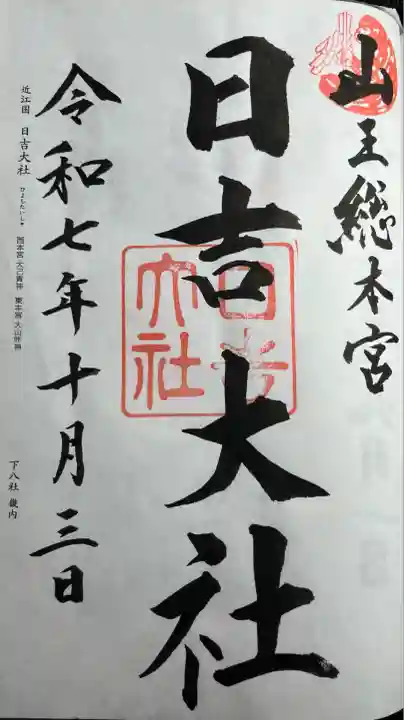 山王総本宮
日吉大社
日吉大社
令和七年十月三日
近江国 日吉大社 ひよしたいしゃ 西本宮 大己貴神 東本宮 大山咋神
下八社 畿内